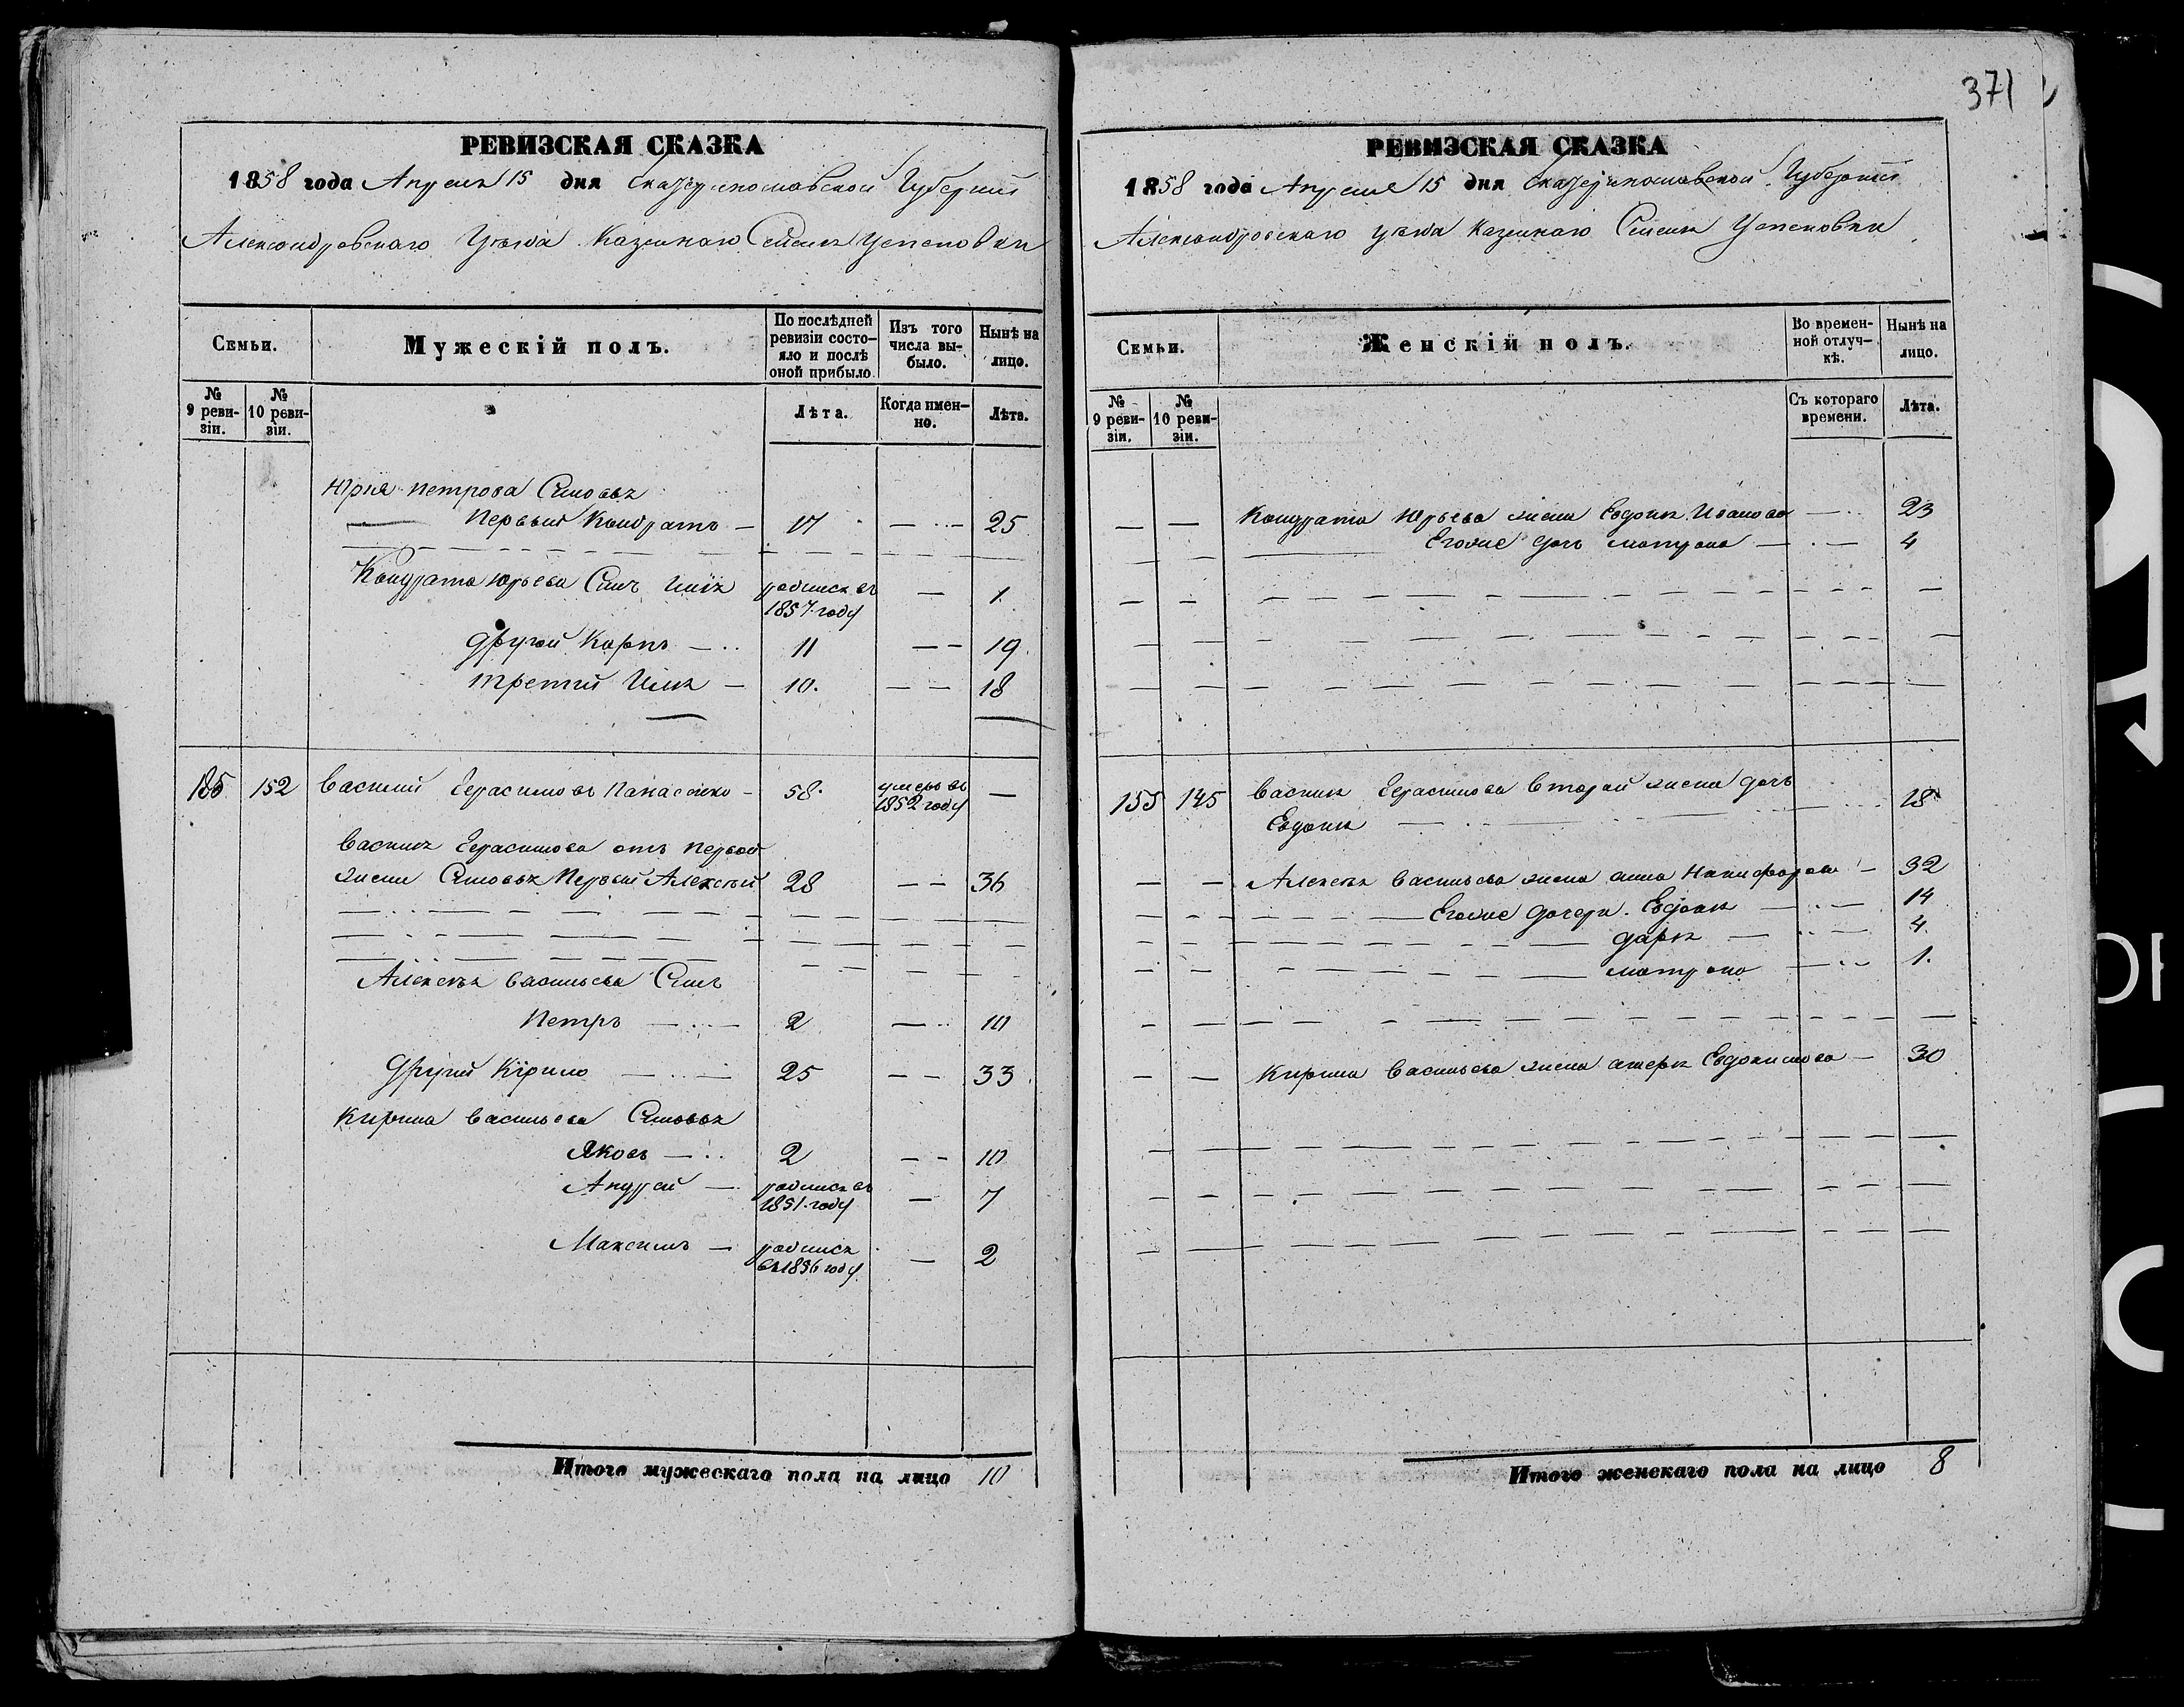 371
РЕВИЗСКАЯ СКАЗКА
1858 года Апреля 15 дня Екатеринославской Губернии
Александровскаго Уезда Казеннаго Селенія Успеновки
Семьи.
Мужескій полъ.
По послѣдней ревизіи состо-яло и послѣ оной прибыло.
Изъ того числа вы-было.
Нынѣ на лицо.
№ 9 реви-зіи.
№ 10 реви-зіи.
Лѣта.
Когда имен-но.
Лѣта.
Юрия Петрова Сыновья
Первый Кондратъ — 17 — 25
Кондрата Юрьева Сынъ Илія родился въ 1857 году — 1
другой Карпъ — 11 — 19
третій Илья — 10. — 18
185 152 Василий Герасимовъ Панасенко — 58. умеръ въ 1852 году —
Василия Герасимова отъ первой
жены Сыновья Первый Алексѣй 28 — 36
Алексѣя Васильева Сынъ
Петръ — 2 — 10
Другий Кирило — 25 — 33
Кирила Васильева Сыновья
Яковъ — 2 — 10
Андрей — родился въ 1851 году — 7
Максимъ — родился въ 1856 году — 2
Итого мужескаго пола на лицо 10
РЕВИЗСКАЯ СКАЗКА
1858 года Апреля 15 дня Екатеринославской Губернии
Александровскаго уезда Казеннаго Селения Успеновки
Семьи.
Женскій полъ.
Во времен-ной отлуч-кѣ.
Нынѣ на лицо.
№ 9 реви-зіи.
№ 10 реви-зіи.
Съ котораго времени.
Лѣта.
Кондрата Юрьева жена Евдокия Иванова — 23
Егоже дочь матрона — 4
155 145 Василия Герасимова второй жены дочь
Евдокия — 18
Алексѣя Васильева жена анна Никифорова — 32
Егоже дочери Евдокия — 14
дарья — 4
матрона — 1.
Кирила Васильева жена Евдокимова — 30
Итого женскаго пола на лицо 8